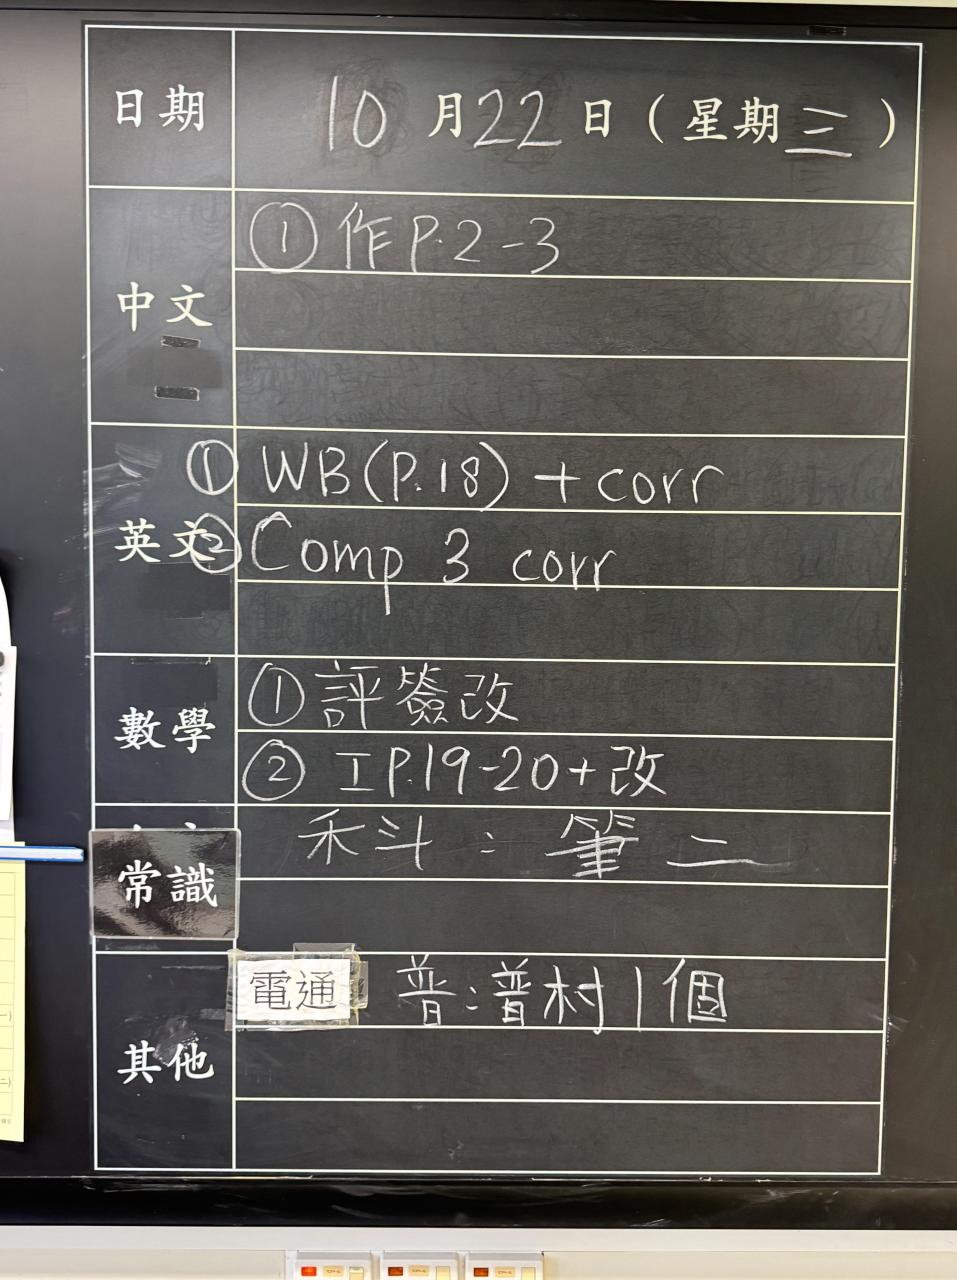 日期 10月22日（星期三）
中文 ①作P.2-3
英文 ①WB(P.18) + corr
②Comp 3 corr
數學 ①評簽改
②工P.19-20+改
常識 科：筆二
其他 電通 普：普村1個